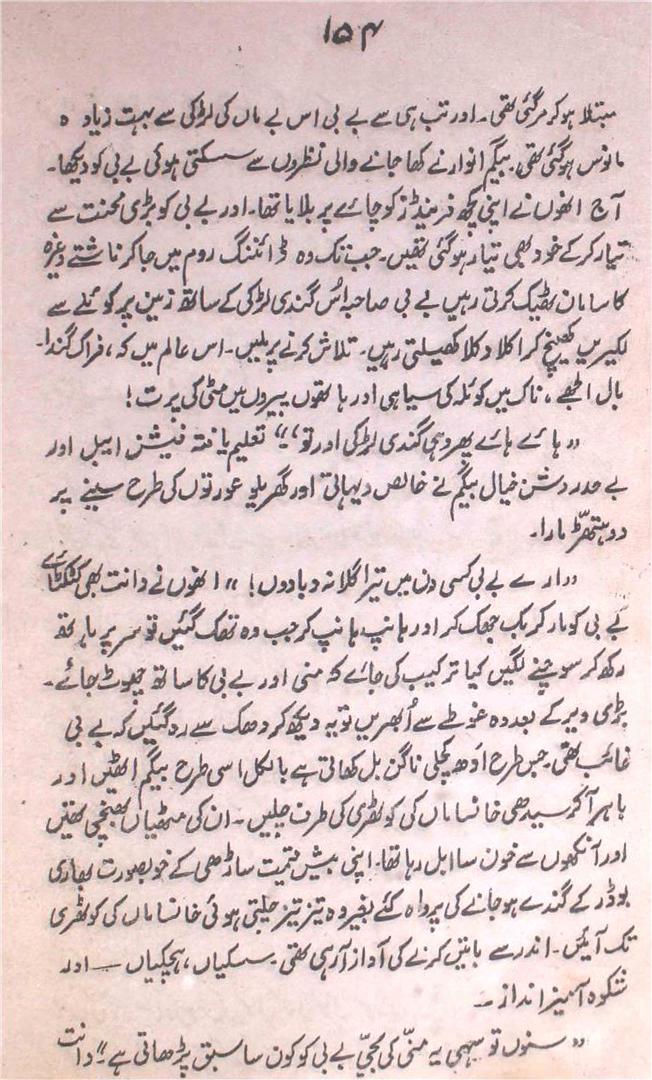 ۱۵۴
مبتلا ہو کر مر گئی تھی۔ اور تب ہی سے بے بی اس بے ماں کی لڑکی سے بہت زیادہ
مانوس ہو گئی تھی۔ بیگم انوار نے کھا جانے والی نظروں سے سسکتی ہوئی بے بی کو دیکھا۔
آج انھوں نے اپنی کچھ فرینڈز کو چائے پر بلایا تھا۔ اور بے بی کو بڑی محنت سے
تیار کر کے خود بھی تیار ہو گئی تھیں۔ جب تک وہ ڈائننگ روم میں جا کر ناشتے وغیرہ
کا سامان ٹھیک کرتی رہیں بے بی صاحبہ اس گندی لڑکی کے ساتھ زمین پر کوئلے سے
لکیریں کھینچ کر اکلا دکلا کھیلتی رہیں۔ تلاش کرنے پر ملیں۔ اس عالم میں کہ، فراک گندا۔
بال الجھے، ناک میں کوئلہ کی سیاہی اور ہاتھوں پیروں میں مٹی کی پرت!
"ہائے ہائے پھر وہی گندی لڑکی اور تو"؛ تعلیم یافتہ فیشن ایبل اور
بے حد روشن خیال بیگم نے خالص دیہاتی اور گھریلو عورتوں کی طرح سینے پر
دو ہتھڑ مارا۔
"ارے بے بی کسی دن میں تیرا گلا نہ دبا دوں!" انھوں نے دانت بھی کٹکٹائے
بے بی کو مار کر بک جھک کر اور ہانپ ہانپ کر جب وہ تھک گئیں تو سر پر ہاتھ
رکھ کر سوچنے لگیں کیا ترکیب کی جائے کہ منی اور بے بی کا ساتھ چھوٹ جائے۔
بڑی دیر کے بعد وہ غوطے سے اُبھریں تو یہ دیکھ کر دھک سے رہ گئیں کہ بے بی
غائب تھی۔ جس طرح اَدھ کچلی ناگن بل کھاتی ہے بالکل اسی طرح بیگم اٹھیں اور
باہر آ کر سیدھی خانساماں کی کوٹھری کی طرف چلیں۔ ان کی مٹھیاں بھینچی تھیں
اور آنکھوں سے خون سا ابل رہا تھا۔ اپنی بیش قیمت ساڑھی کے خوبصورت بھاری
بوڈر کے گندے ہو جانے کی پرواہ کئے بغیر وہ تیز تیز چلتی ہوئی خانساماں کی کوٹھری
تک آئیں۔ اندر سے باتیں کرنے کی آواز آ رہی تھی۔ سسکیاں، ہچکیاں — اور
شکوہ آمیز انداز ۔۔
"سنوں تو سہی یہ منّی کی بچّی بے بی کو کون سا سبق پڑھاتی ہے۔" دانت